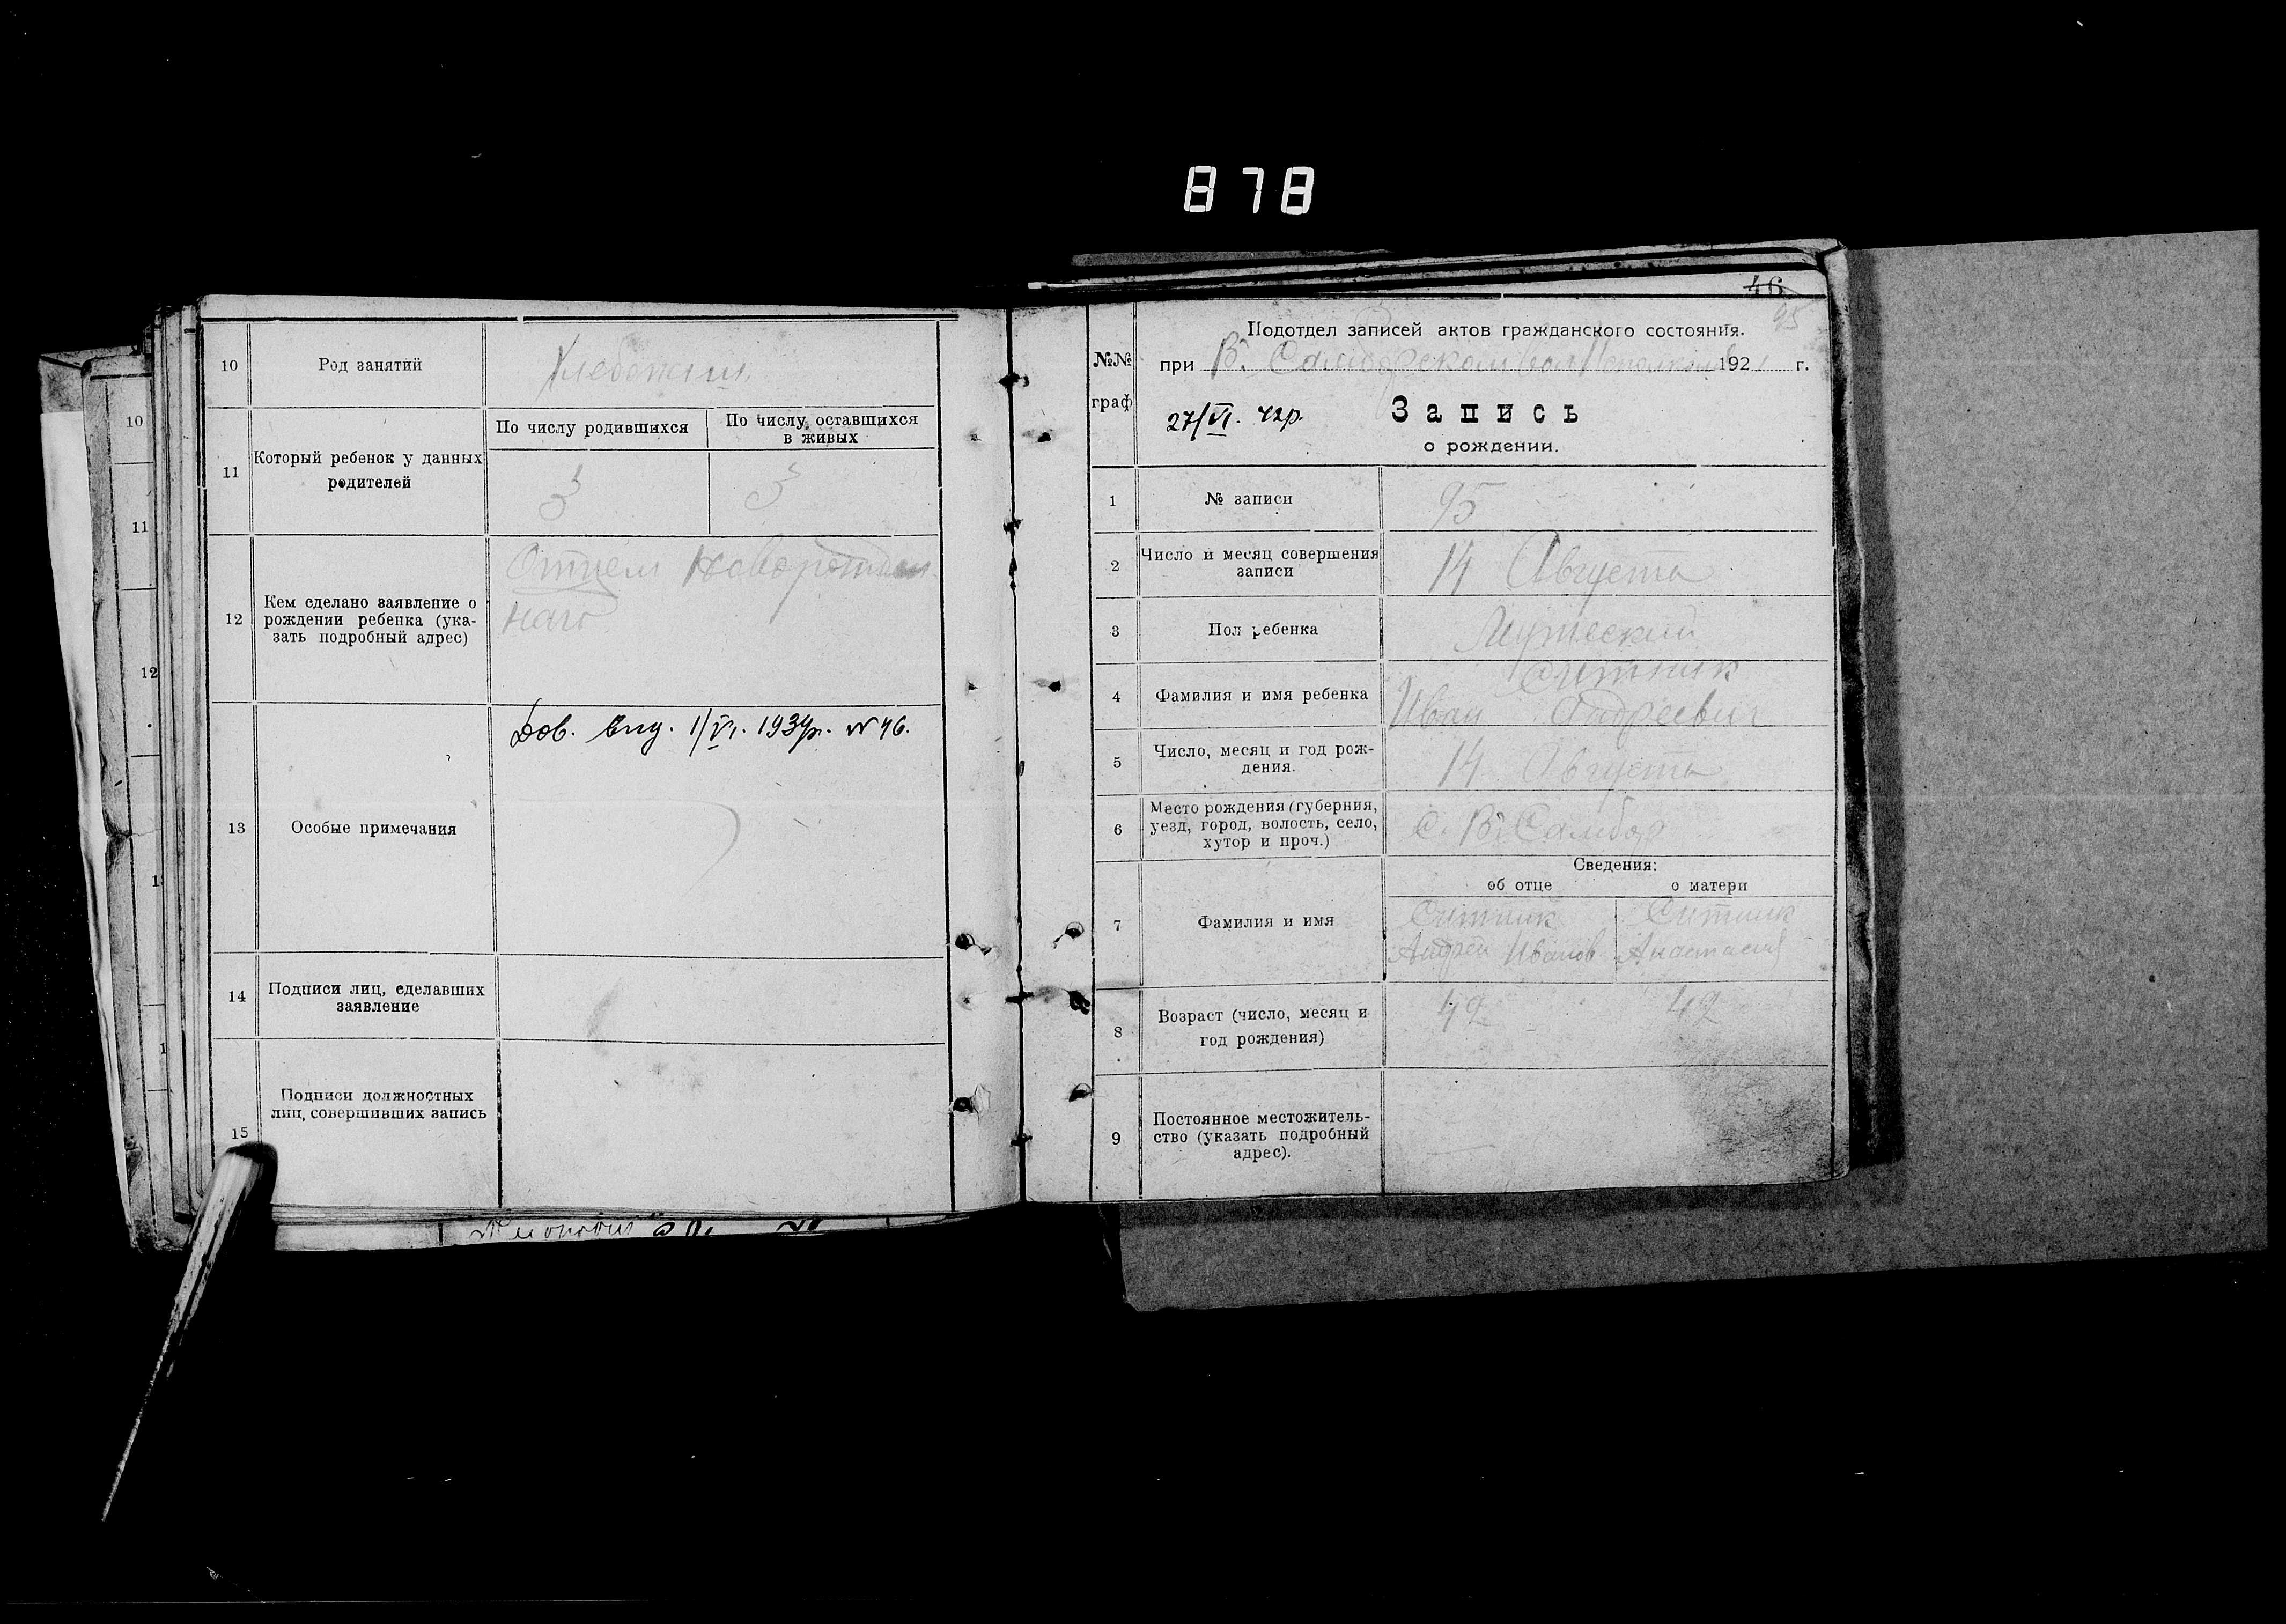 878
10
Род занятий
Хлебопаш.
11
Который ребенок у данных
родителей
По числу родившихся
По числу оставшихся
в живых
3
3
12
Кем сделано заявление о
рождении ребенка (ука-
зать подробный адрес)
Отцем Новорожден
наго
13
Особые примечания
Дов. вид. 1/VI. 1934р. N 46.
14
Подписи лиц, сделавших
заявление
15
Подписи должностных
лиц, совершивших запись
10
11
12
46
95
№№
граф
Подотдел записей актов гражданского состояния.
при В. Самборском Вол 192 г.
27/VI. 42р.
Запись
о рождении.
1
№ записи
95
2
Число и месяц совершения
записи
14 Августа
3
Пол ребенка
Мужеский
4
Фамилия и имя ребенка
Ситник
Иван Андреевич
5
Число, месяц и год рож-
дения.
14 Августа
6
Место рождения (губерния,
уезд, город, волость, село,
хутор и проч.)
С. В. Самбор
Сведения:
об отце
о матери
7
Фамилия и имя
Ситник
Андрей Иванов
Ситник
Анастасия
8
Возраст (число, месяц и
год рождения)
42
42
9
Постоянное местожитель-
ство (указать подробный
адрес).